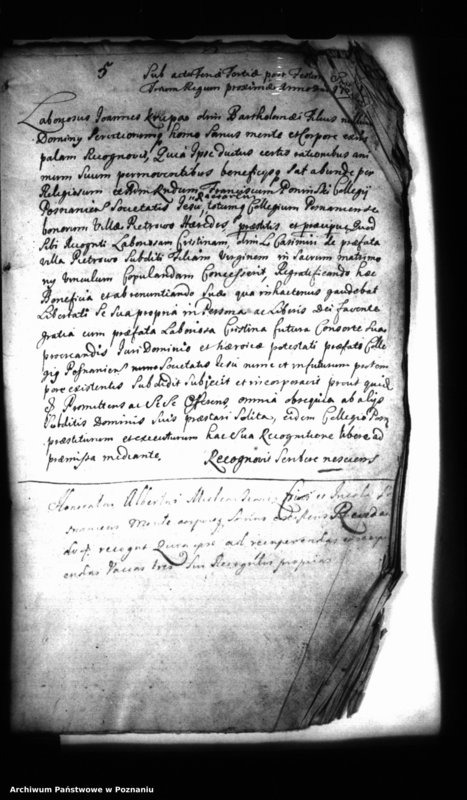 5
Sub actu feria tertia post Festum
Trium Regum proximâ Anno
Laboriosus Joannes Krupa olim Bartholomæi Filius nullius
Dominy Servitoriens homo Sanus mente et Corpore existens
palam Recognovit, Quia Ipse ductus certis rationibus ani
mum Suum permoventibus beneficysq Sat abunde per
Religiosum Franciscum Poninski Collegij
Posnaniensis Societatis Jesu totumq Collegium Posnaniense
bonorum Villæ Pietrowo Hæredes præstitis et præcipue Quod
Sibi Laboriosam Cristinam, olim Casimiri de præfata
villa Pietrowo Subditi Filiam Virginem in Sacrum matrimo
ny Vinculum Copulandam Concesserit, Regratificando hæc
Beneficia et abrenuntiando Suæ qua in hactenus gaudebat
Libertati Se Sua propria in Persona ac Liberis Dei favente
gratia cum præfata Laboriosa Cristina futura Consorte Sua
procreandis Juri Dominio et hæreditariæ potestati præfato Colle
gio Posnaniensi Societatis Jesu nunc et in futurum pro tem
pore existentes Subdidit Subjecit et incorporavit prout quidem
Promittens ac Se Offerens omnia obsequia ab alijs
Subditis Dominis Suis præstari Solita, eidem Collegio Posn
præstiturum et executurum hac Sua Recognitione libere ad
præmissa mediante. Recognovit Scribere nesciens
Honoratus Albertus et Incola
mente corporeq existens
recognt Quia ipse ad recuperandas et
endas Vaccas tres Sui Recognitis proprias
Archiwum Państwowe w Poznaniu